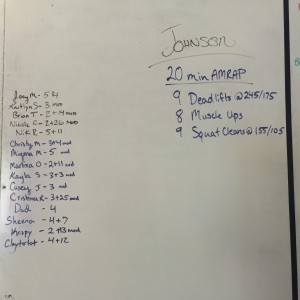 JOHNSON
20 min AMRAP
9 Deadlifts @ 245/175
8 Muscle Ups
9 Squat Cleans @ 155/105
Joey M - 54
Kaitlyn S - 3 mod
Brian T - 2 + 4 mod
Nicole C - 2+26 mod
Nik R - 5+11
Christy M - 3+4 mod
Mypma M - 5 mod
Martina O - 2+11 mod
Kayla S - 3+3 mod
Casey J - 3 mod
Cristina R - 3+25 mod
Dad - 4
Sheena - 4+7
Krispy - 2+13 mod
Claytolot - 4+12